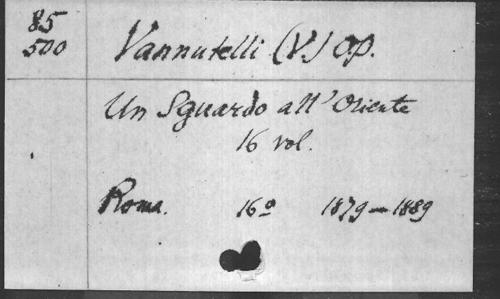 85
500
Vannutelli (V.) O.P.
Un Sguardo all' Oriente
16 vol.
Roma. 16º 1879-1889